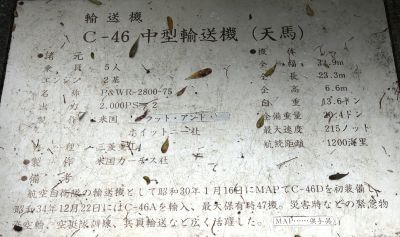 輸送機
C-46 中型輸送機(天馬)
●諸元
乗員 5人
エンジン 2基
名称 P&WR-2800-75
出力 2,000PS 2
製 米国 ラット・アンド・
ホイットニー社
●製作 米国カーチス社
●備考
●機体
全幅 .9m
全長 23.3m
全高 6.6m
自重 13.6トン
全備重量 20.4トン
最大速度 215ノット
航続距離 1200海里
航空自衛隊の輸送機として昭和30年1月16日にMAPでC-46Dを初装備し
昭和34年12月22日にはC-46Aを輸入、最大保有時47機。災害時などの緊急物
空輸、空挺隊訓練、兵員輸送など広く活躍した。 MAP……供与